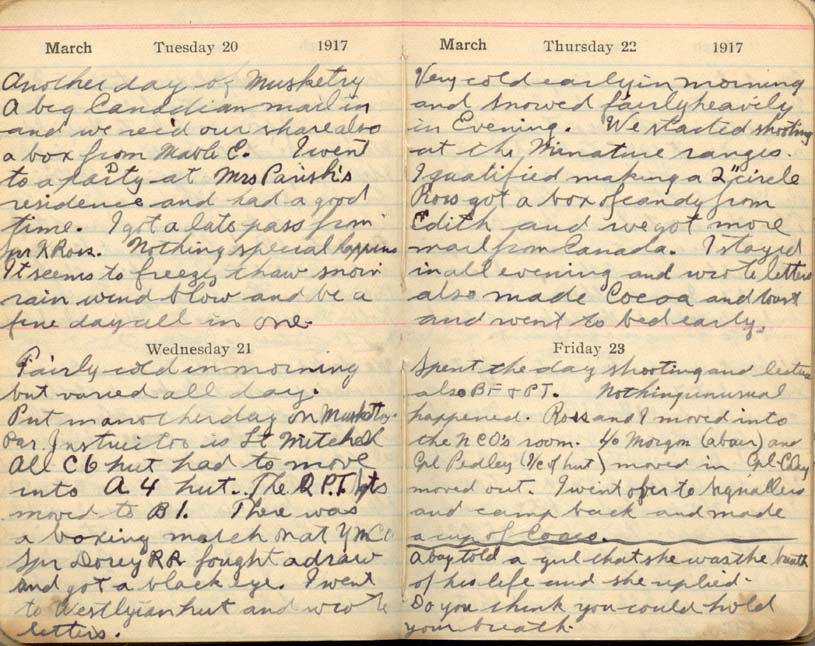 March Tuesday 20 1917
Another day of Musketry
A big Canadian mail in
and we rec'd our share also
a box from Mable C. I went
to a party at Mrs Parish's
residence and had a good
time. I got a late pass from
Ross. Nothing special happens
It seems to freeze, thaw snow
rain wind blow and be a
fine day all in one.
Wednesday 21
Fairly cold in morning
but varied all day.
Put in another day on Musketry.
Our Instructor is Lt Mitchell
All C6 hut had to move
into A 4 hut. The P.T.
moved to B1. There was
a boxing match on at YMCA
Spr Dorey RR fought a draw
and got a black eye. I went
to Westlyian hut and wrote
letters.
March Thursday 22 1917
Very cold early in morning
and snowed fairly heavily
in Evening. We started shooting
at the Minature ranges.
I qualified making a 2" circle
Ross got a box of candy from
Edith and we got more
mail from Canada. I stayed
in all evening and wrote letters
also made Cocoa and toast
and went to bed early.
Friday 23
Spent the day shooting and lecture
also BF & PT. Nothing unusual
happened. Ross and I moved into
the NCO's room. Morgan and
Cpl Pedley (I/c of hut) moved in Cpl
moved out. I went over to Signallers
and camp back and made
a cup of Cocoa.
A boy told a girl that she was the breath
of his life and she replied-
Do you think you could hold
your breath.